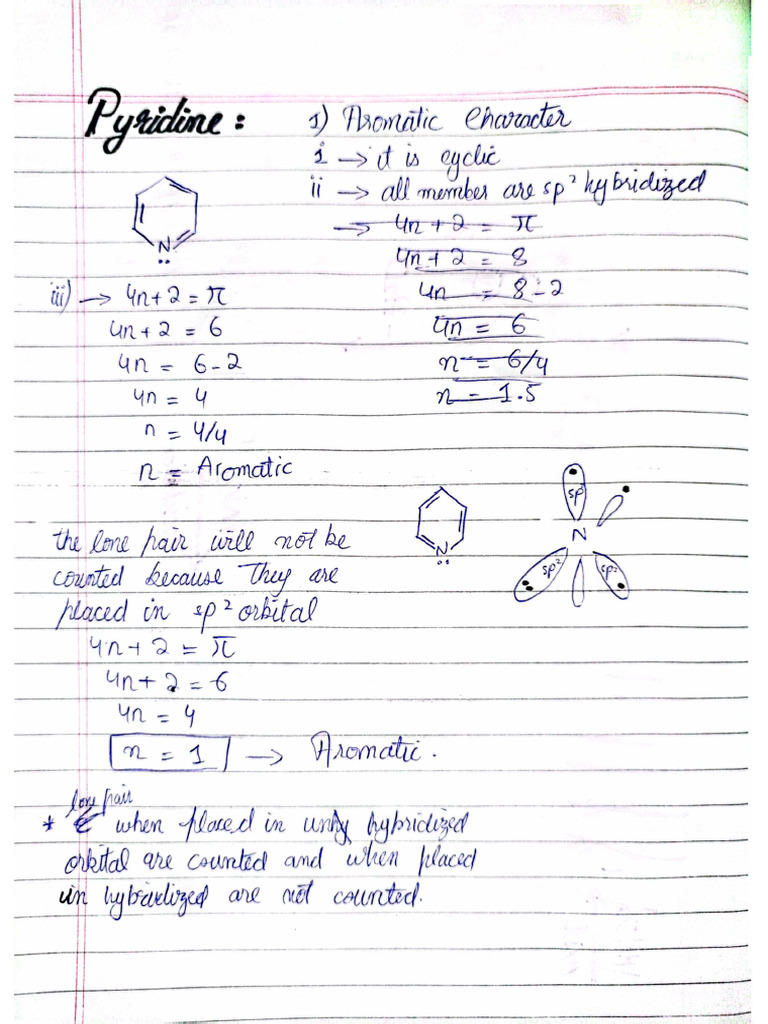 Pyridine :
1) Aromatic Character
i → it is cyclic
ii → all member are sp² hybridized
→ 4n + 2 = π
4n + 2 = 8
4n = 8 - 2
4n = 6
n = 6/4
n = 1.5
N
iii) → 4n + 2 = π
4n + 2 = 6
4n = 6 - 2
4n = 4
n = 4/4
n = Aromatic
N
sp²
N
sp²
sp²
the lone pair will not be
counted because They are
placed in sp² orbital
4n + 2 = π
4n + 2 = 6
4n = 4
n = 1 → Aromatic.
lone pair
* when placed in unhy hybridized
orbital are counted and when placed
in hybridized are not counted.